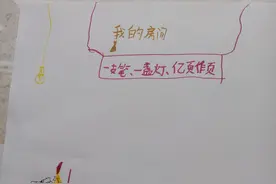 我的房间
一支笔、一盏灯、亿页作页